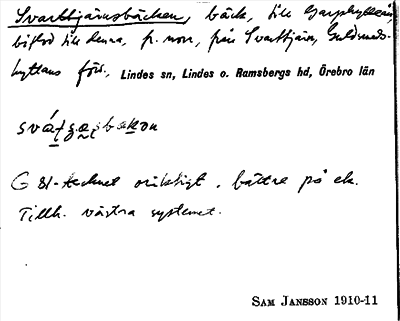 Svarttjärnsbäcken, bäck, till Garphytteån
biflod till denna, fr. norr, från Svarttjärn, Guldsmeds-
hyttans förs., Lindes sn, Lindes o. Ramsbergs hd, Örebro län
G 81-tecknet oriktigt, bättre på ek.
Tillh. västra systemet.
SAM JANSSON 1910-11